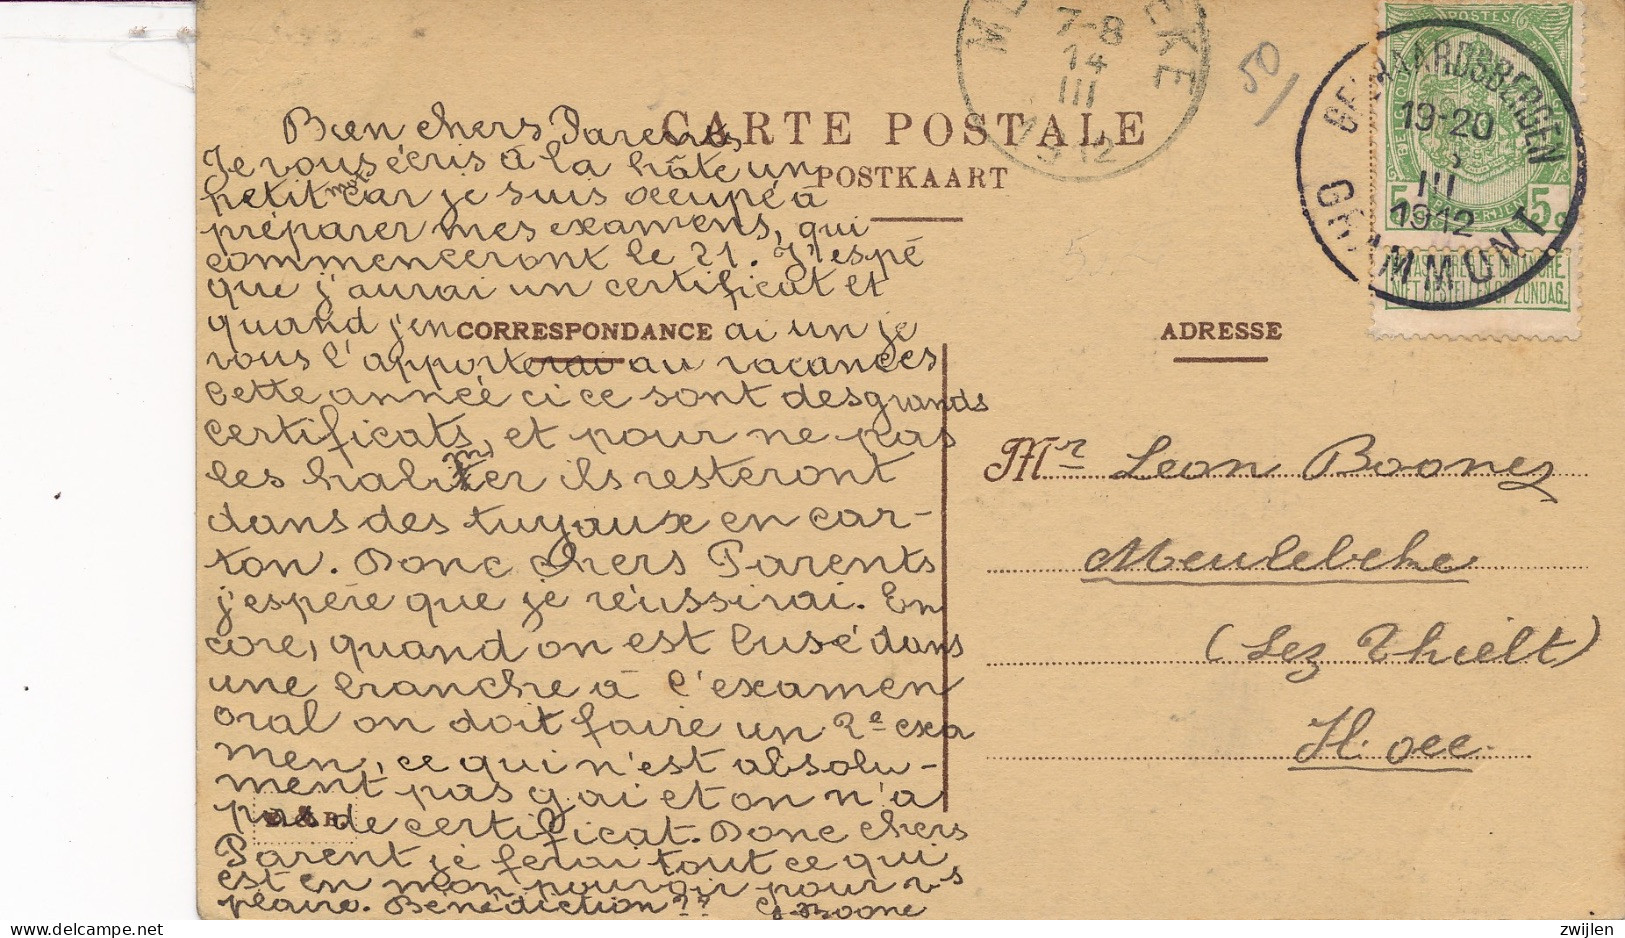 CARTE POSTALE
POSTKAART
CORRESPONDANCE
ADRESSE
Bien chers Parents
Je vous écris à la hâte un
petit mot car je suis occupé à
préparer mes examens, qui
commenceront le 21. J'espé
que j'aurai un certificat et
quand j'en ai un je
vous l'apporterai au vacances
Cette année ci ce sont des grands
certificats, et pour ne pas
les habimer ils resteront
dans des tuyaux en car-
ton. Donc chers Parents
j'espère que je réussirai. En
core, quand on est busé dans
une branche à l'examen
oral on doit faire un 2e exa
men, ce qui n'est absolu-
ment pas gai et on n'a
pas de certificat. Donc chers
Parent je ferai tout ce qui
est en mon pouvoir pour vs
plaire. Bénédiction ?? G Boone
Mr Leon Boone
Meulebeke
(Lez Thielt)
Fl. occ.
50
7-8
14
III
1912
POSTES
5 c
NE PAS LIVRER LE DIMANCHE
NIET BESTELLEN OP ZONDAG
GEERAARDSBERGEN
19-20
III
1912
GRAMMONT
zwijlen